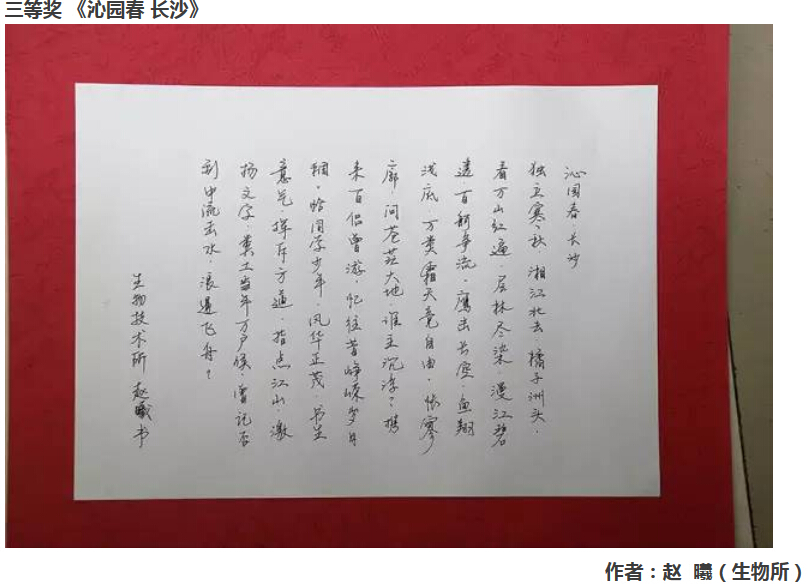 三等奖 《沁园春 长沙》
沁园春·长沙
独立寒秋·湘江北去·橘子洲头·
看万山红遍·层林尽染·漫江碧
透百舸争流·鹰击长空·鱼翔
浅底·万类霜天竞自由·怅寥
廓·问苍茫大地·谁主沉浮？携
来百侣曾游·忆往昔峥嵘岁月
稠·恰同学少年·风华正茂·书生
意气·挥斥方遒·指点江山·激
扬文字·粪土当年万户侯·曾记否
到中流击水·浪遏飞舟？
生物技术所 赵曦书
作者：赵 曦（生物所）